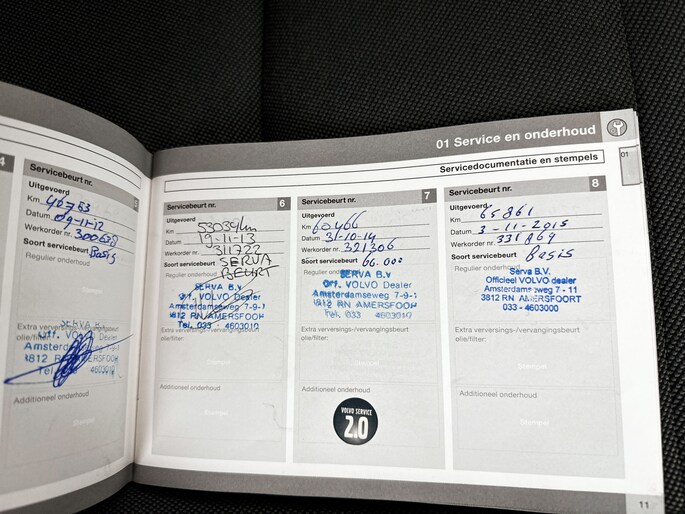 01 Service en onderhoud
Servicedocumentatie en stempels
01
4
Servicebeurt nr. 5
Uitgevoerd
Km 46753
Datum 09-11-12
Werkorder nr.
Soort servicebeurt Basis
Regulier onderhoud
SERVA B.V
Off. VOLVO Dealer
Amsterdamseweg 7-9-1
3812 RN AMERSFOORT
Tel. 4603010
Extra verversings-/vervangingsbeurt
olie/filter:
Additioneel onderhoud
Servicebeurt nr. 6
Uitgevoerd
Km 53034km
Datum 19-11-13
Werkorder nr. 311722
Soort servicebeurt SERVA
BEURT
Regulier onderhoud
SERVA B.V
Off. VOLVO Dealer
Amsterdamseweg 7-9-1
3812 RN AMERSFOORT
Tel. 033 - 4603010
Extra verversings-/vervangingsbeurt
olie/filter:
Additioneel onderhoud
Servicebeurt nr. 7
Uitgevoerd
Km 60466
Datum 31-10-14
Werkorder nr. 321306
Soort servicebeurt 66.000
Regulier onderhoud
SERVA B.V
Off. VOLVO Dealer
Amsterdamseweg 7-9-1
3812 RN AMERSFOORT
Tel. 033 - 4603010
Extra verversings-/vervangingsbeurt
olie/filter:
Additioneel onderhoud
VOLVO SERVICE
2.0
Servicebeurt nr. 8
Uitgevoerd
Km 65861
Datum 3-11-2015
Werkorder nr. 331869
Soort servicebeurt Basis
Regulier onderhoud
Serva B.V.
Officieel VOLVO dealer
Amsterdamseweg 7 - 11
3812 RN AMERSFOORT
033 - 4603000
Extra verversings-/vervangingsbeurt
olie/filter:
Additioneel onderhoud
11